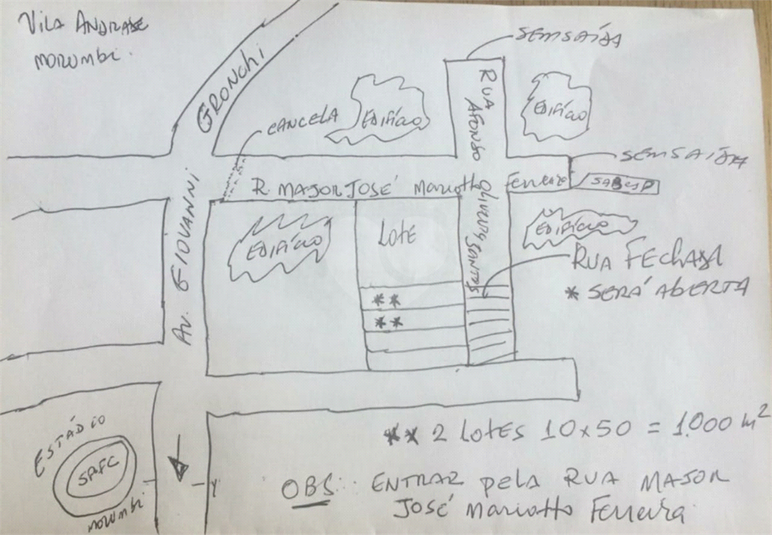 VILA ANDRADE
MORUMBI.
AV. GIOVANNI GRONCHI
CANCELA
EDIFÍCIO
RUA AFONSO OLIVEIRA SANTOS
SEM SAÍDA
EDIFÍCIO
SEM SAÍDA
R. MAJOR JOSÉ MARIOTTO FERREIRA
SABESP
EDIFÍCIO
LOTE
EDIFÍCIO
RUA FECHADA
* SERÁ ABERTA
**
**
ESTÁDIO
SPFC
MORUMBI
** 2 LOTES 10x50 = 1.000 m²
OBS: ENTRAR PELA RUA MAJOR
JOSÉ MARIOTTO FERREIRA